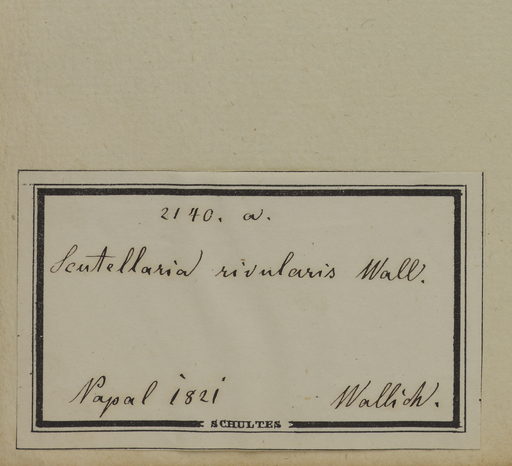 2140. a.
Scutellaria rivularis Wall.
Napal 1821 Wallich.
SCHULTES